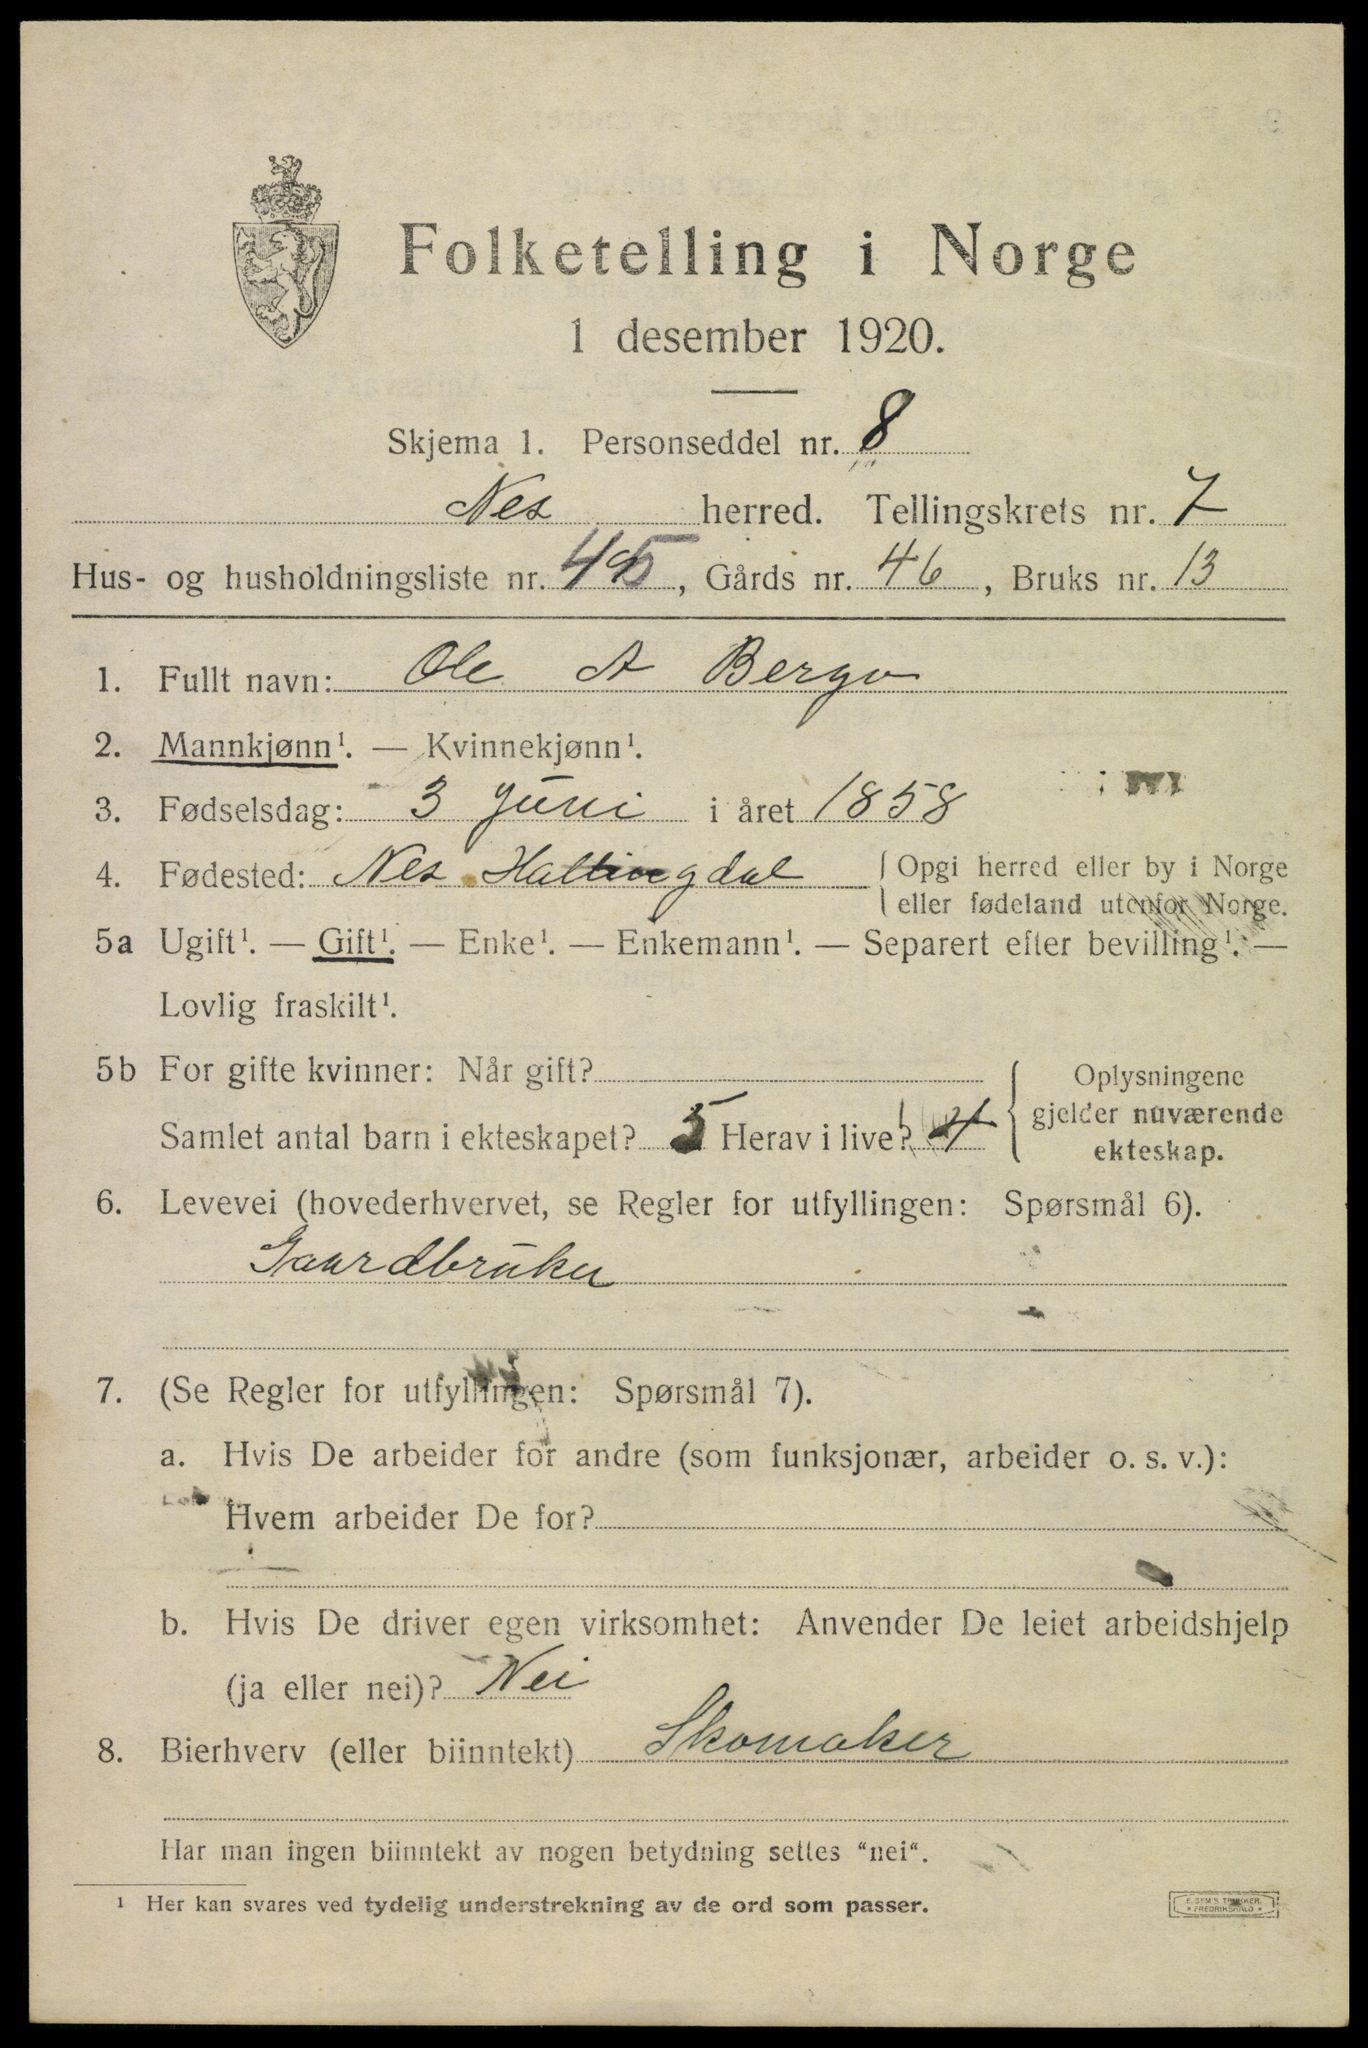 Folketelling i Norge
1 desember 1920.
Skjema 1. Personseddel nr. 8
Nes herred. Tellingskrets nr. 7
Hus- og husholdningsliste nr. 45, Gårds nr. 46, Bruks nr. 13
1. Fullt navn: Ole A Bergo
2. Mannkjønn¹. — Kvinnekjønn¹.
3. Fødselsdag: 3 Juni i året 1858
4. Fødested: Nes Hallingdal { Opgi herred eller by i Norge
eller fødeland utenfor Norge.
5a Ugift¹. — Gift¹. — Enke¹. — Enkemann¹. — Separert efter bevilling¹. —
Lovlig fraskilt¹.
5b For gifte kvinner: Når gift? { Oplysningene
gjelder nuværende
ekteskap.
Samlet antal barn i ekteskapet? 5 Herav i live? 4
6. Levevei (hovederhvervet, se Regler for utfyllingen: Spørsmål 6).
Gaardbruker
7. (Se Regler for utfyllingen: Spørsmål 7).
a. Hvis De arbeider for andre (som funksjonær, arbeider o. s. v.):
Hvem arbeider De for?
b. Hvis De driver egen virksomhet: Anvender De leiet arbeidshjelp
(ja eller nei)? Nei
8. Bierhverv (eller biinntekt) Skomaker
Har man ingen biinntekt av nogen betydning settes "nei".
¹ Her kan svares ved tydelig understrekning av de ord som passer.
E. SEM'S TRYKKERI,
FREDRIKSHALD